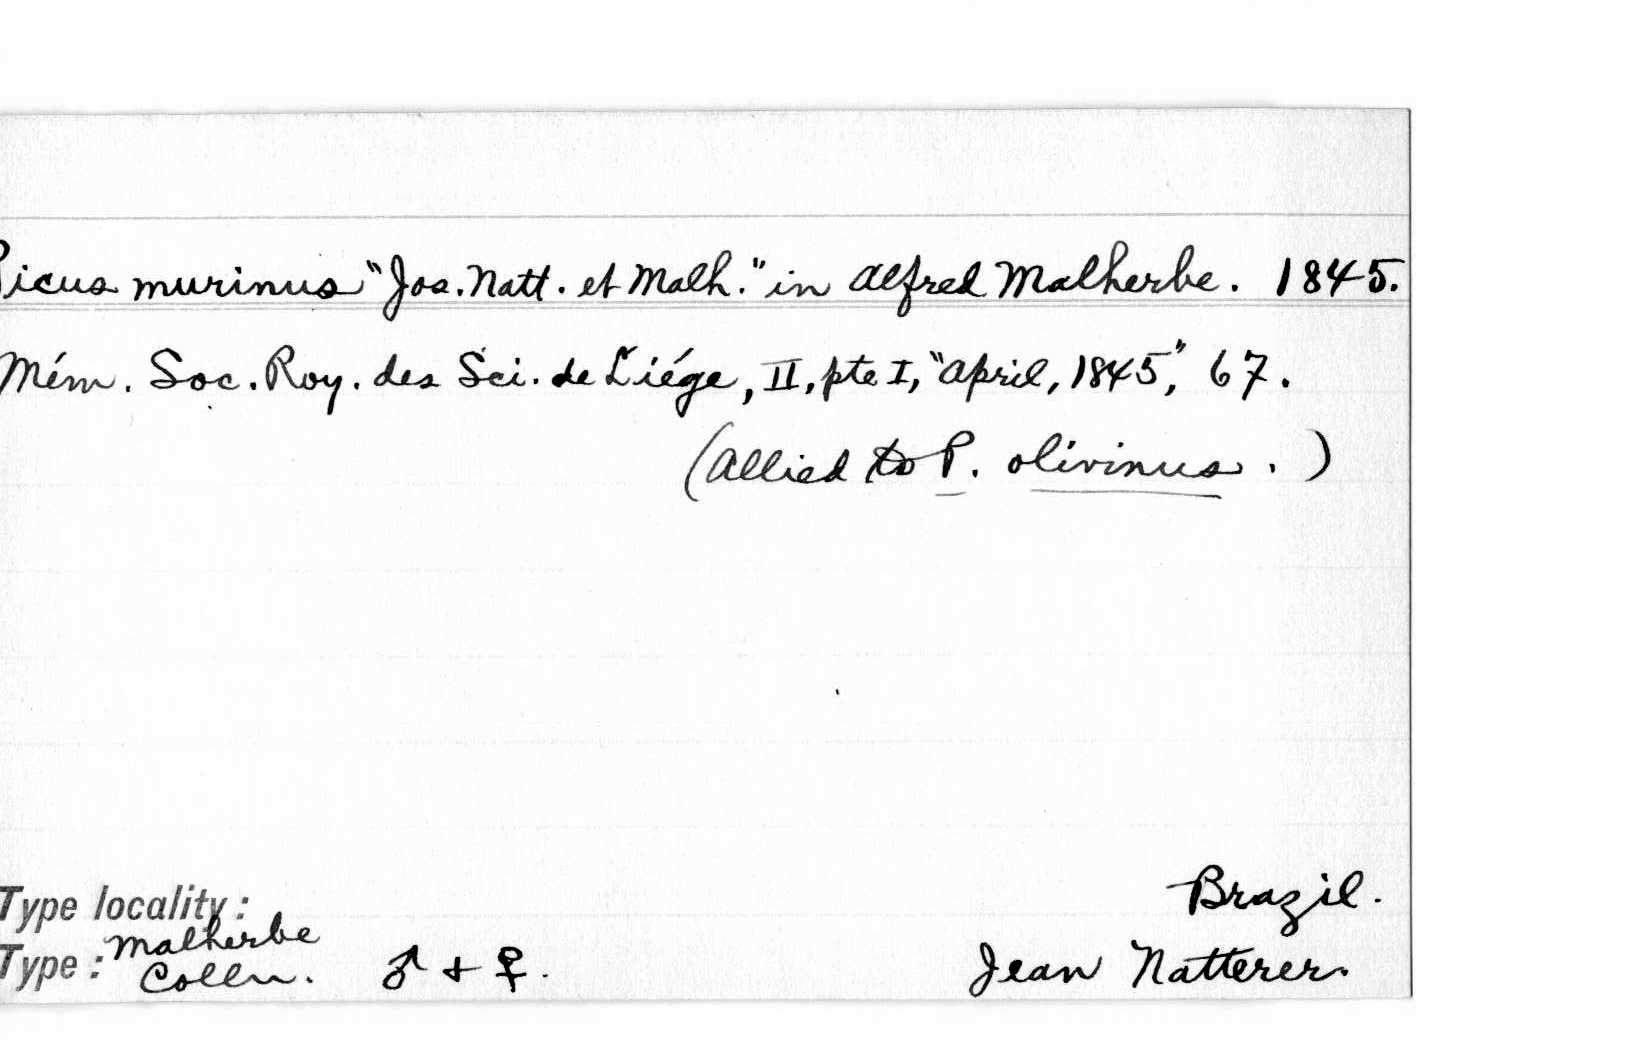 Picus murinus "Jos. Natt. et Malh." in Alfred Malherbe. 1845.
Mém. Soc. Roy. des Sci. de Liége, II, pte I, "April, 1845", 67.
(Allied to P. olivinus.)
Type locality: Brazil.
Type: Malherbe Colln. ♂ + ♀. Jean Natterer.